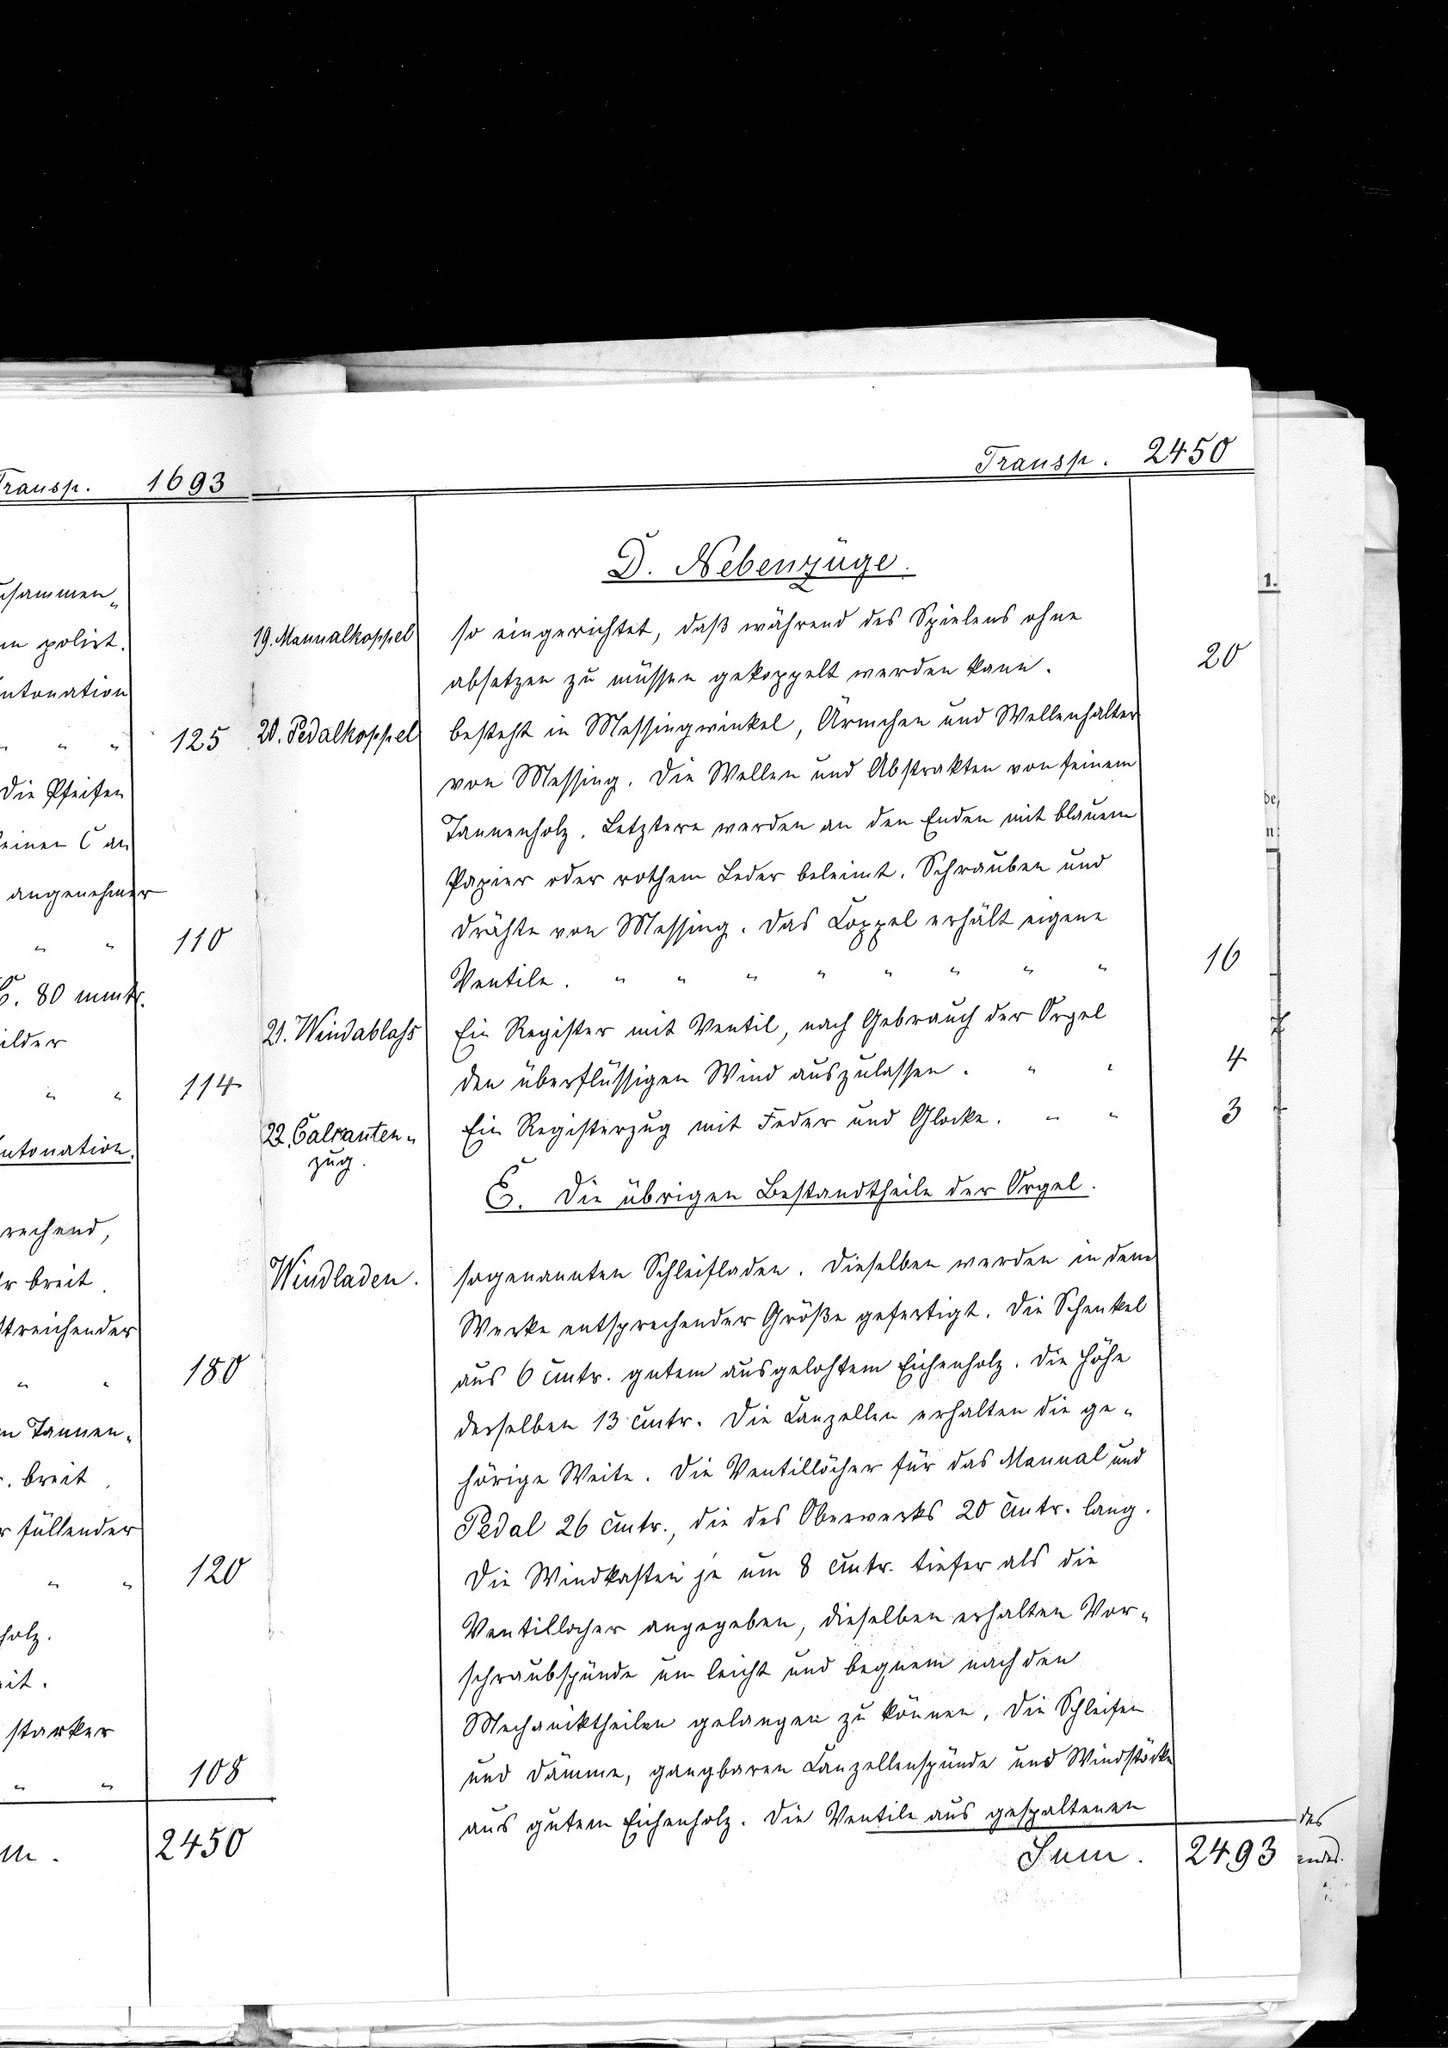 Transp. 1693
usammen„
un polirt.
ntonation
" " " 125
Die Pfeifen
C an
angenehmer
" " 110
C. 80 mmtr.
ilder
" " 114
ntonation.
rechend,
r breit.
streichender
" " 180
n Tannen„
. breit.
r füllender
" " 120
holz.
eit.
starker
" " 108
m. 2450
Transp. 2450
D. Nebenzüge.
19. Manualkoppel so eingerichtet, daß während des Spielens ohne
absetzen zu müssen gekoppelt werden kann. 20
20. Pedalkoppel besteht in Messingwinkel, Ärmchen und Wellenhalter
von Messing. Die Wellen und Abstrakten von feinem
Tannenholz. Letztere werden an den Enden mit blauem
Papier oder rothem Leder beleimt. Schrauben und
Drähte von Messing. Das Coppel erhält eigene
Ventile. " " " " " " " " 16
21. Windablass Ein Register mit Ventil, nach Gebrauch der Orgel
den überflüssigen Wind auszulassen. " " 4
22. Calcanten„ Ein Registerzug mit Feder und Glocke. " " 3
zug.
E. Die übrigen Bestandtheile der Orgel.
Windladen. sogenannten Schleifladen. Dieselben werden in dem
Werke entsprechender Größe gefertigt. Die Schenkel
aus 6 Cmtr. gutem ausgelohtem Eichenholz. Die Höhe
derselben 13 Cmtr. Die Canzellen erhalten die ge„
hörige Weite. Die Ventillöcher für das Manual und
Pedal 26 Cmtr., die des Oberwerks 20 Cmtr. lang.
Die Windkasten je um 8 Cmtr. tiefer als die
Ventillocher angegeben, dieselben erhalten Vor„
schraubspünde um leicht und bequem nach den
Mechaniktheilen gelangen zu können. Die Schleifen
und Dämme, gangbaren Canzellenspünde und Windstöcke
aus gutem Eichenholz. Die Ventile aus gespaltenen
Sum. 2493
1.
des